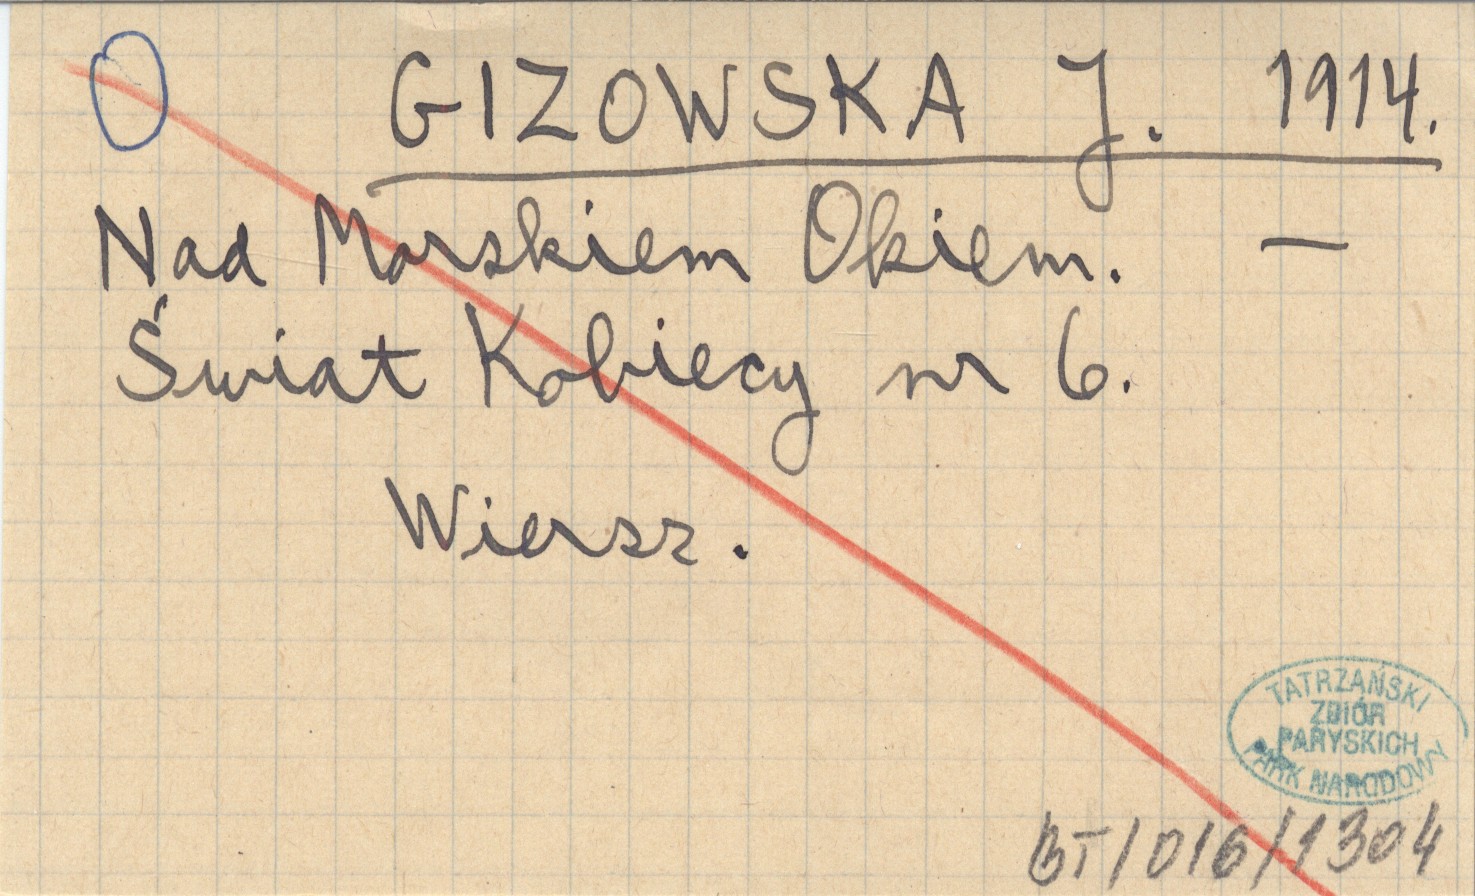 O GIZOWSKA J. 1914.
Nad Morskiem Okiem. —
Świat Kobiecy nr 6.
Wiersz.
TATRZAŃSKI
ZBIÓR
PARYSKICH
PARK NARODOWY
BT/016/1304